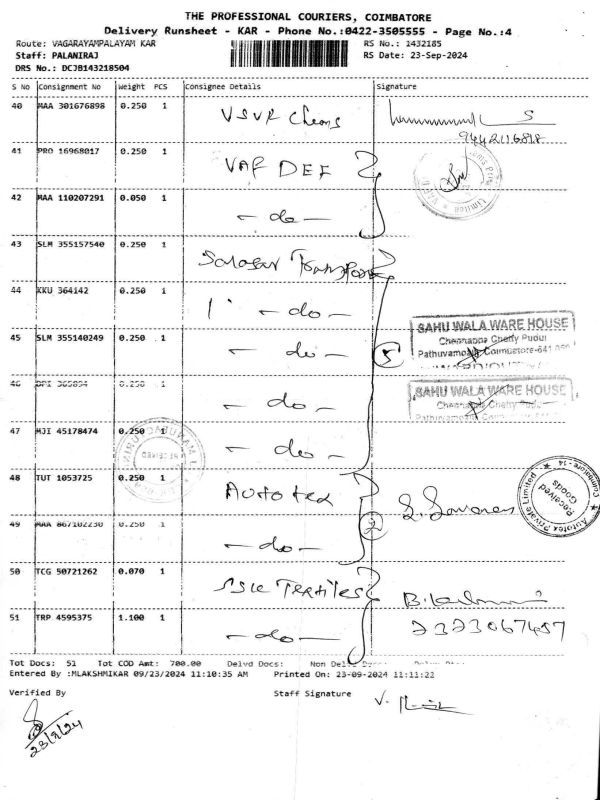 THE PROFESSIONAL COURIERS, COIMBATORE
Delivery Runsheet - KAR - Phone No.:0422-3505555 - Page No.:4
Route: VAGARAYAMPALAYAM KAR RS No.: 1432185
Staff: PALANIRAJ RS Date: 23-Sep-2024
DRS No.: DCJB143218504
S No Consignment No Weight PCS Consignee Details Signature
40 MAA 301676898 0.250 1 VSVK
9442116818
41 PRO 16968017 0.250 1 VAF DEF
42 MAA 110207291 0.050 1 - do -
43 SLM 355157540 0.250 1
44 KKU 364142 0.250 1 - do -
SAHU WALA WARE HOUSE
Chennappa Chetty Pudur
45 SLM 355140249 0.250 1 - do - 5
46 0.250 1 - do -
SAHU WALA WARE HOUSE
47 MJI 45178474 0.250 1 - do -
48 TUT 1053725 0.250 1 Autotex
Received Goods
Autotex Private Limited
Coimbatore - 14
49 MAA 867102230 0.250 1 - do - 2
50 TCG 50721262 0.070 1 Textiles
51 TRP 4595375 1.100 1 - do -
Tot Docs: 51 Tot COD Amt: 700.00 Delvd Docs:
Entered By :MLAKSHMIKAR 09/23/2024 11:10:35 AM Printed On: 23-09-2024 11:11:22
Verified By Staff Signature
23/9/24